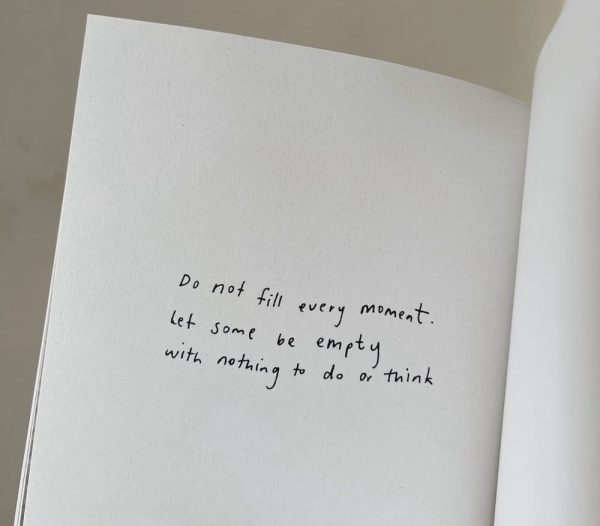 Do not fill every moment.
Let some be empty
with nothing to do or think